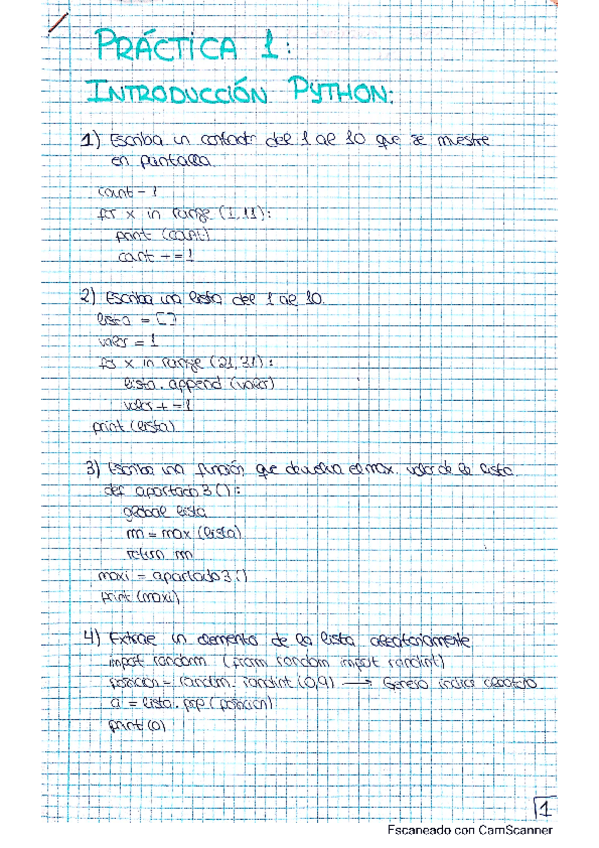 PRÁCTICA 1:
INTRODUCCIÓN PYTHON:
1) Escriba un contador del 1 al 10 que se muestre
en pantalla.
count = 1
for x in range (1,11):
print (count)
count += 1
2) Escriba una lista del 1 al 10.
lista = []
valor = 1
for x in range (21,31):
lista.append (valor)
valor += 1
print (lista)
3) Escriba una función que devuelva el max. valor de la lista.
def apartado3():
global lista
m = max (lista)
return m
maxi = apartado3()
print (maxi)
4) Extrae un elemento de la lista aleatoriamente
import random (from random import randint)
posicion = random.randint (0,9) → Genero índice aleatorio
a = lista.pop (posicion)
print (a)
1
Escaneado con CamScanner